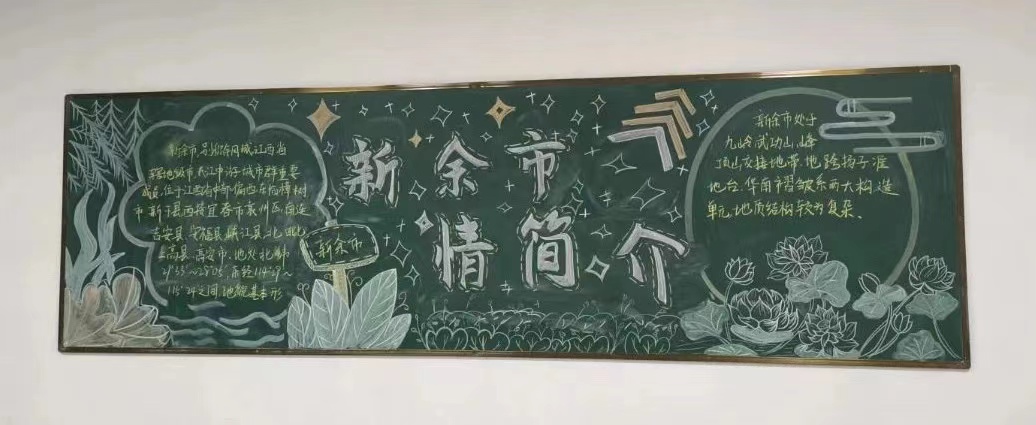 新余市
情简介
新余市,
地级市,长江中游城市群重要
成员,位于江西省中部偏西,东临樟树
市新干县,西接宜春市袁州区,南连
吉安县安福县峡江县,北
上高县、高安市,地处北纬
27°33'~28°05',东经114°29'~
115°24'之间,地貌基本形
新余市
新余市处于
九岭武功山峰
顶山交接地带,地跨扬子准
地台、华南市褶皱系两大构造
单元,地质结构较为复杂。